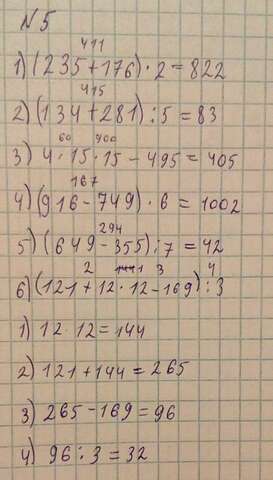 №5
411
1) (235+176)·2=822
415
2) (134+281):5=83
60 900
3) 4·15·15-495=405
167
4) (916-749)·6=1002
294
5) (649-355):7=42
2 1 3 4
6) (121+12·12-169):3
1) 12·12=144
2) 121+144=265
3) 265-169=96
4) 96:3=32